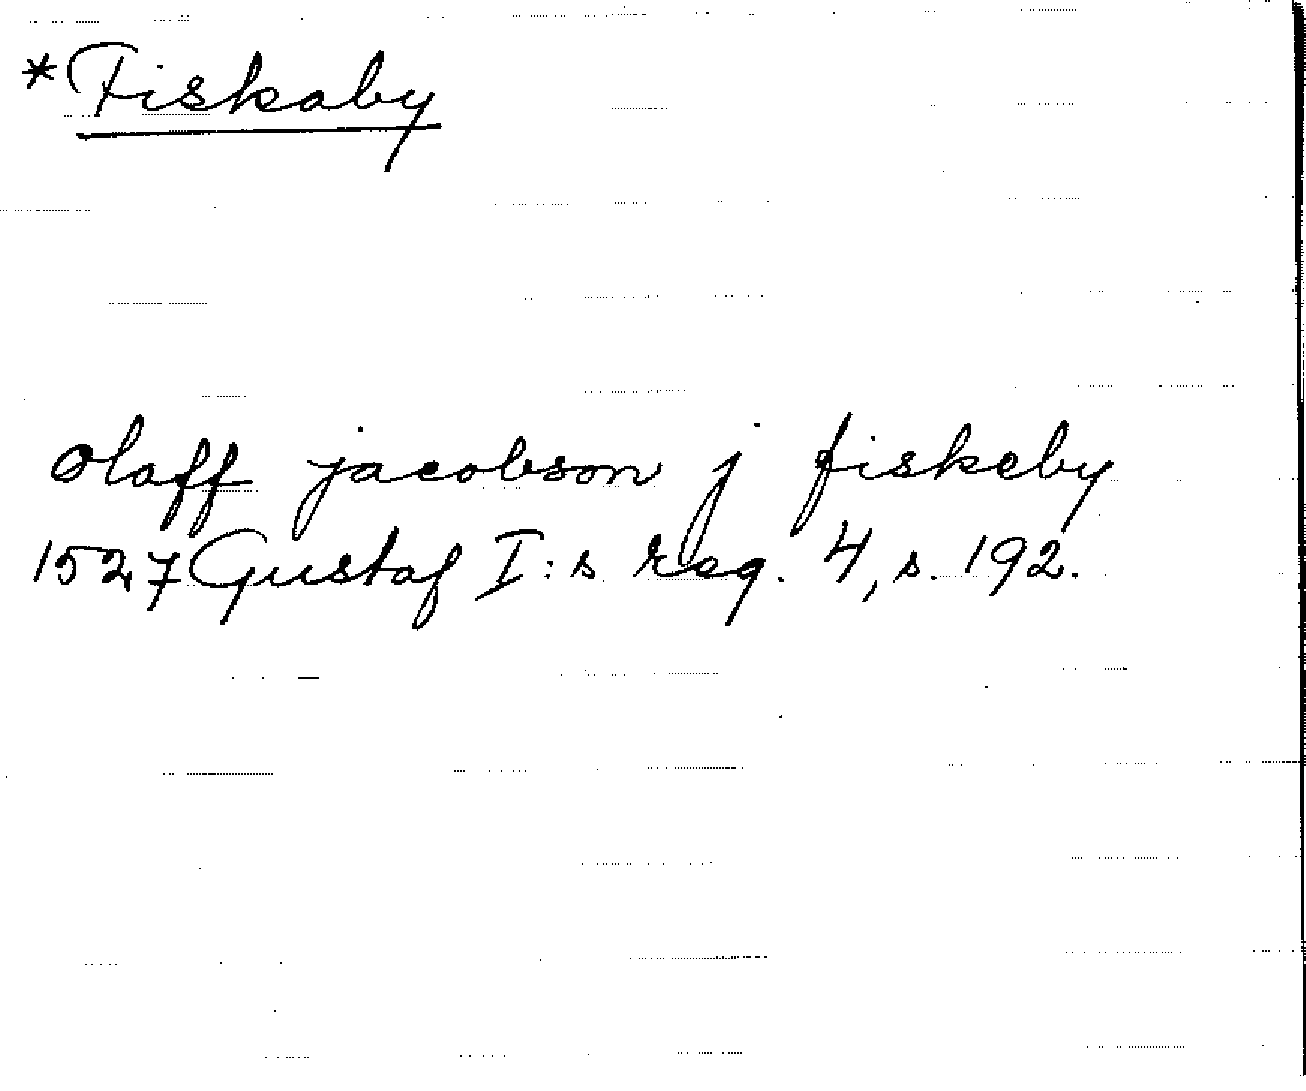 *Fiskaby
Olaff jacobson j fiskeby
1527 Gustaf I:s reg. 4, s. 192.